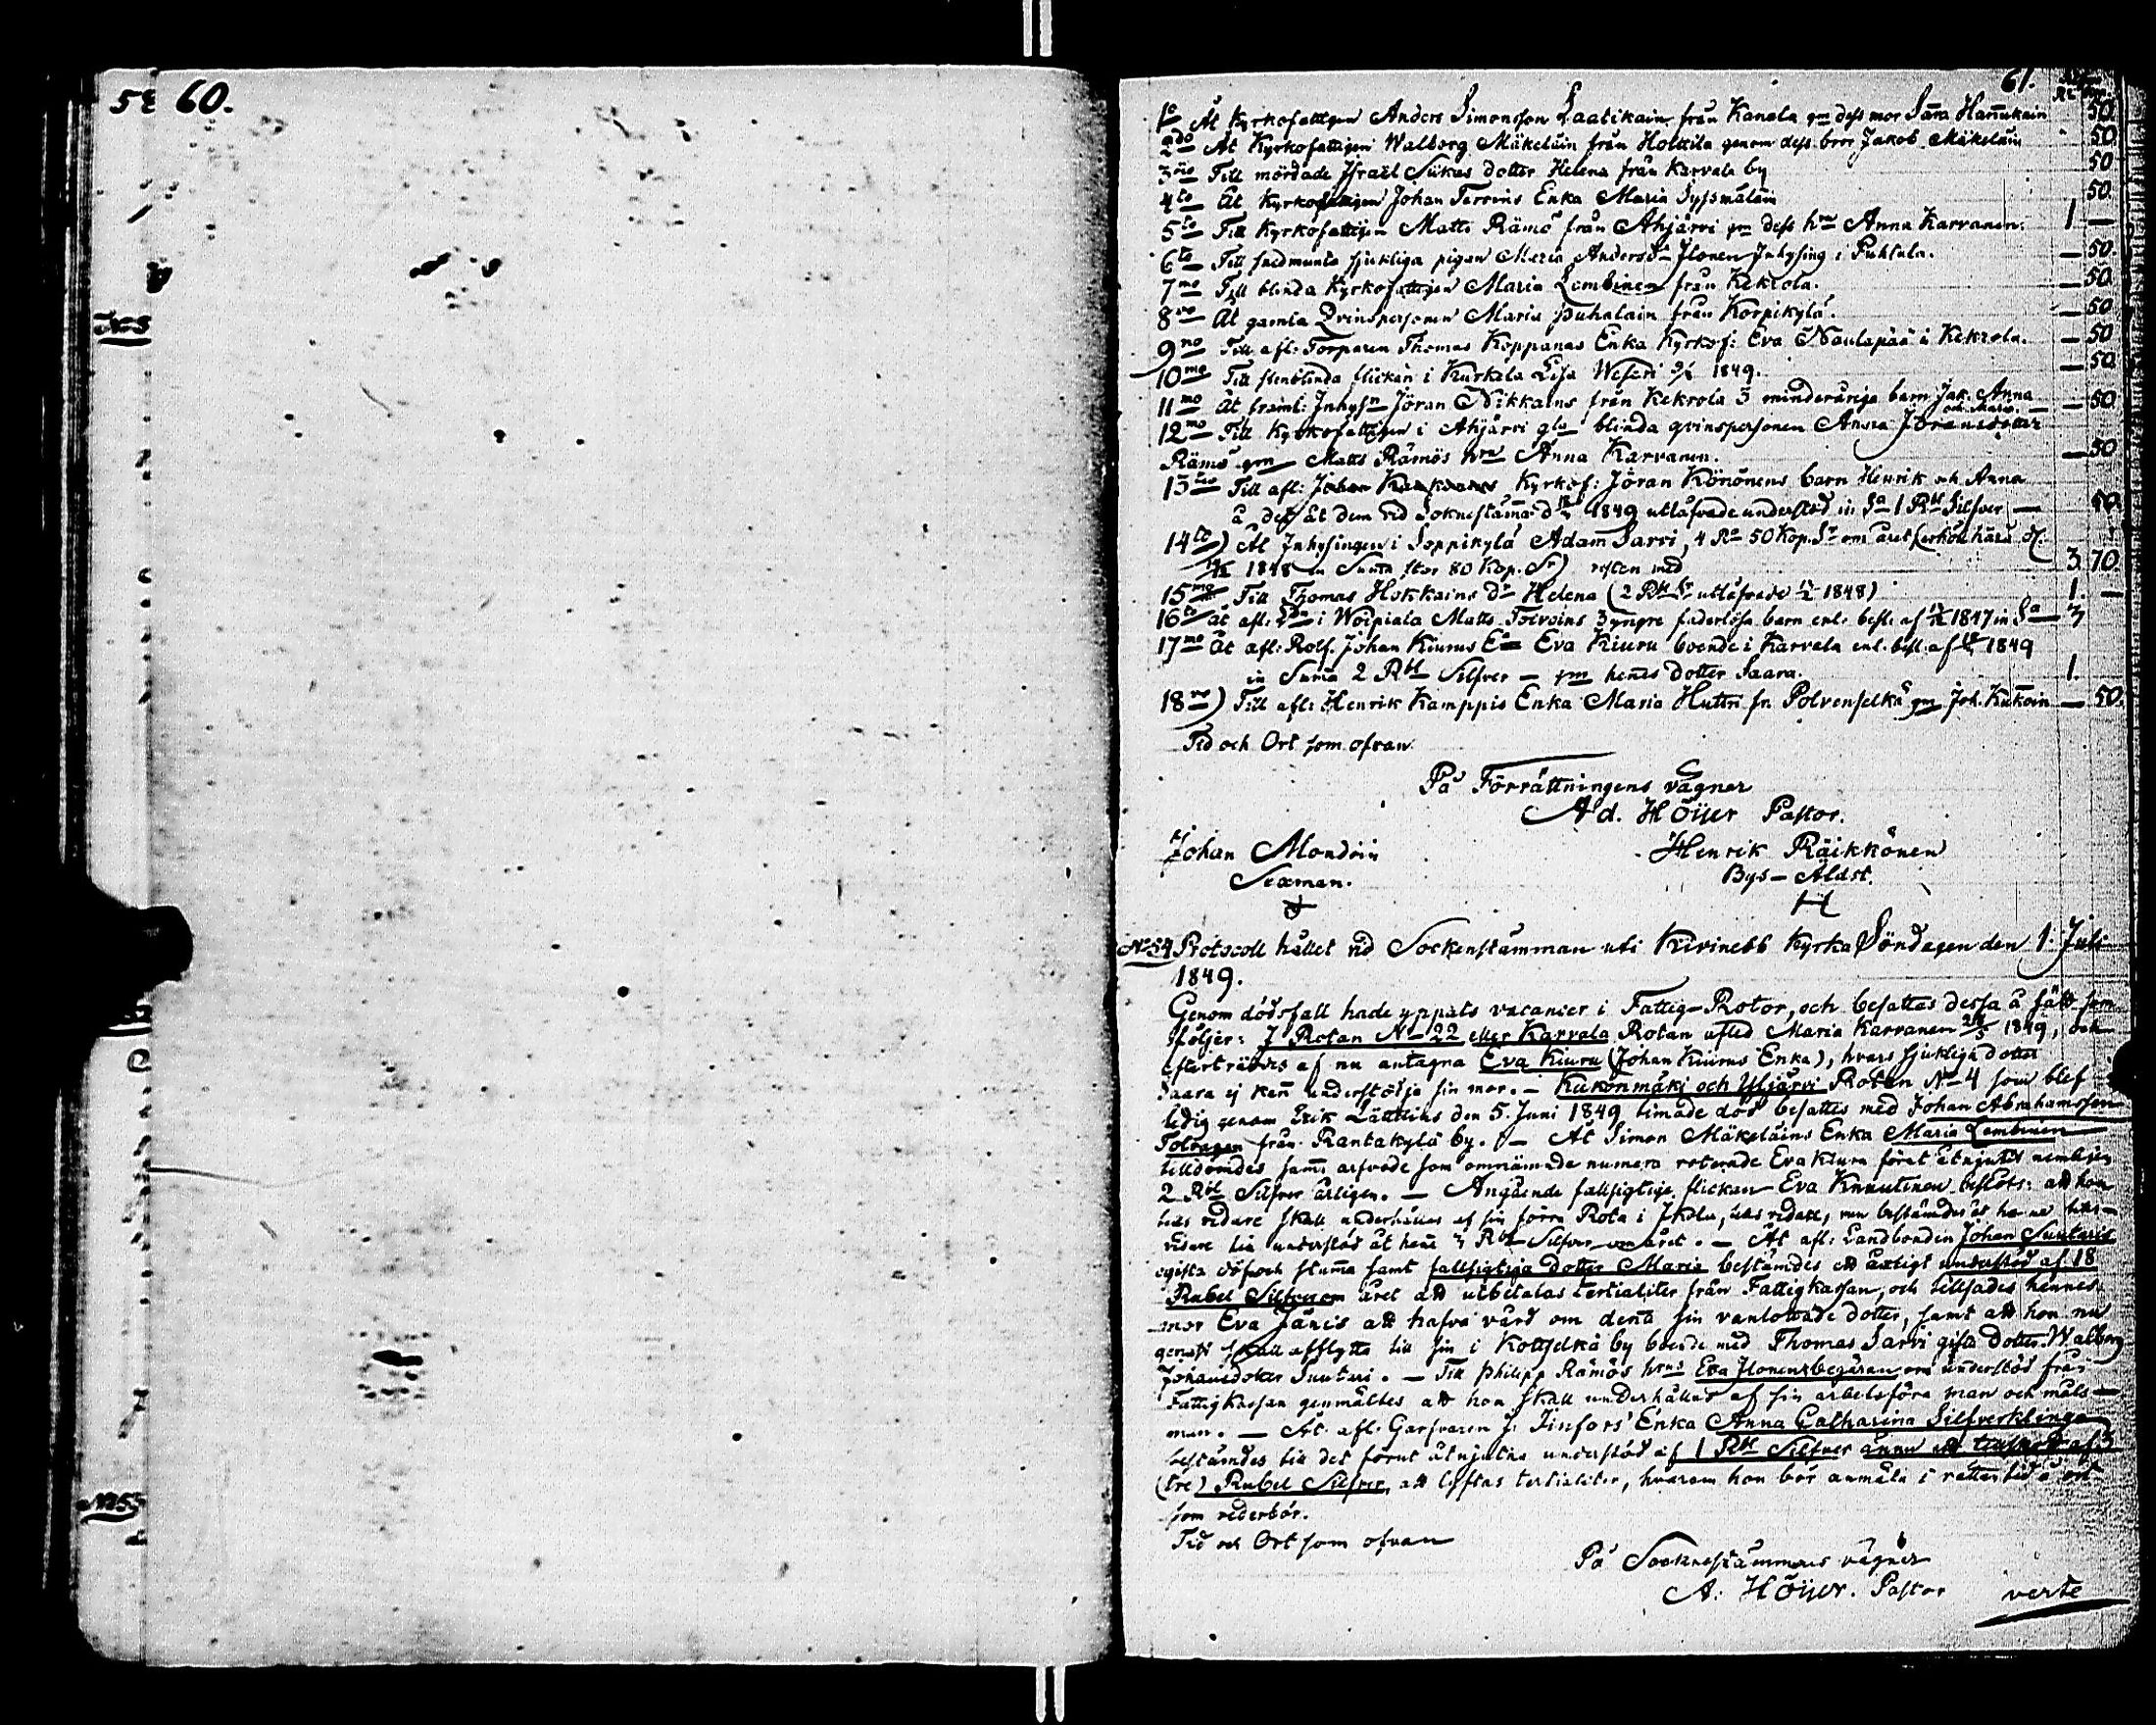 60.
61.
1o Åt Kyrkofattigen Anders Simonsson Laatikain från Kanala gm dess mor Sara Hanukain 50.
2do Åt Kyrkofattigen Walborg Mäkeläin från Holttila genom dess bror Jakob Mäkeläin 50
3tio Till mördade Israel Sukas dotter Helena från Karvala by 50
4to Åt Kyrkofattigen Johan Terrins Enka Maria Sypsmäläin 50.
5to Till Kyrkofattigen Matts Rämö från Ahjärvi gm dess hru Anna Karvanen. 1 —
6to Till sjukliga pigan Maria Andersd. Ilonen Inhysing i Puhtula. — 50.
7mo Till blinda Kyrkofattigen Maria Lembinen från Kekrola. — 50
8vo Åt gamla Qvinspersonen Maria Puhalain från Korpikylä. — 50
9no Till afl: Torparen Thomas Koppanas Enka Kyrkof: Eva Naulapää i Kekrola. — 50
10mo Till stenblinda flickan i Kurkela Lisa Weseri 1849. — 50.
11mo Åt framl: Inhysn Jöran Nikkains från Kekrola 3 minderåriga barn Jak. Anna och Maria. — 50
12mo Till Kyrkofattigen i Ahjärvi gla blinda qvinspersonen Anna Jöransdotter
Rämö gm Matts Rämös hru Anna Karvanen. — 50
13tio Till afl: Kyrkof: Jöran Könönens barn Henrik och Anna
å det åt dem vid Soknestämma d 1849 utlåfvade understöd in Sa 1 Rbl Silfver — 50.
14to) Åt Inhysingen i Soppikylä Adam Sarvi, 4 Ro 50 Kop. Sr om året
1848 en Suma stor 80 Kop. Sr) resten med 3 70
15mo Till Thomas Hokkains dr Helena (2 Rbl Sr utlåfvade 1848) 1. —
16to åt afl: i Woipiala Matts Toivoins 3 yngre faderlösa barn enl. besl. af 1847 in Sa — 3
17mo Åt afl: Rotf. Johan Kiurus Ea Eva Kiuru boende i Karvala enl. besl. af 1849
in Suma 2 Rbl Silfver — gm henes dotter Saara. 1.
18vo) Till afl: Henrik Kamppis Enka Maria Huttri fr. Polvenselkä gm Joh. Kukoin — 50.
Tid och Ort som ofvan.
På Förrättningens vägnar
Ad. Höijer Pastor.
Johan Mondoin Henrik Räikkönen
Sexman. Bys-Äldst.
No 54 Protocoll hållet vid Sockenstämman uti Kivinebb Kyrka Söndagen den 1. Juli
1849.
Genom dödsfall hade yppats vacancer i Fattig-Rotor, och besattes dessa å sätt som
följer: I Rotan No 22 eller Karvala Rotan afled Maria Karvanen 1849, och
efterträddes af nu antagna Eva Kiuru (Johan Kiurus Enka), hvars sjukliga dotter
Saara ej kan understödja sin mor. — Kukonmäki och Ylijärvi Rotan No 4 som blef
ledig genom Erik Lättiins den 5. Juni 1849 timade död besattes med Johan Abrahamsson
Tolvanen från Rantakylä by. — Åt Simon Mäkeläins Enka Maria Lembinen
tilldömdes sama arfvode som omnämnde numera roterade Eva Kiuru förut åtnjutit nemligen
2 Rbl Silfver årligen. — Angående fallsigtige flickan Eva Knuutinen beslöts: att hon
tills vidare skall underhållas af sin förra Rota i tills vidare, men bestämdes åt
understöd åt hene 3 Rbl Silfver om året. — Åt afl: Landbonden Johan Suutaris
ogifta döf och stuma samt fallsigtiga dotter Maria bestämdes ett årligt understöd af 18
Rubel Silfver om året att utbetalas tertialiter från Fattigkassan, och tillsades hennes
mor Eva Jänis att hafva vård om denna sin vanlottade dotter, samt att hon nu
genast skall afflytta till sin i Kottselkä by boende med Thomas Sarvi gifta dotter Walborg
Johansdotter Suutari. — Till Philipp Rämös hrus Eva Ilonens begäran om understöd från
Fattigkassan genmältes att hon skall underhållas af sin arbetsföra man och måls-
man. — Åt afl: Garfvaren J. Finfors' Enka Anna Catharina Silfverklinga
bestämdes till det förut åtnjutna understöd af 1 Rbl Silfver ännu ett af 3
(tre) Rubel Silfver, att lyftas tertialiter, hvarom hon bör anmäla i rättan tid å ort
som vederbör.
Tid och Ort som ofvan
På Socknestämmans vägnar
A. Höijer. Pastor verte
No 55